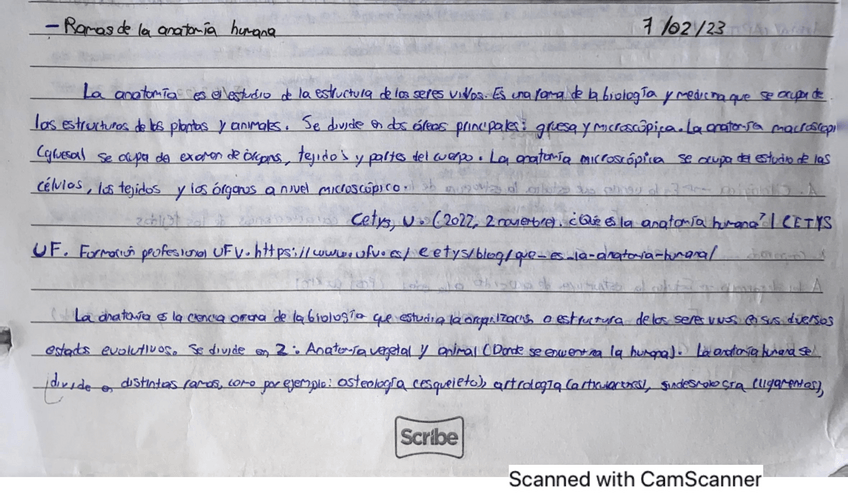 - Ramas de la anatomía humana 7/02/23
La anatomía es el estudio de la estructura de los seres vivos. Es una rama de la biología y medicina que se ocupa de
las estructuras de las plantas y animales. Se divide en dos áreas principales: gruesa y microscópica. La anatomía macroscópi
(gruesa) se ocupa de examen de órgans, tejidos y partes del cuerpo. La anatomía microscópica se ocupa del estudio de las
células, los tejidos y los órganos a nivel microscópico.
Cetys, U. (2022, 2 noviembre). ¿Qué es la anatomía humana? | CETYS
UF. Formación profesional UFV. https://www.ufv.es/cetys/blog/que-es-la-anatomia-humana/
La anatomía es la ciencia o rama de la biología que estudia la organización o estructura de los seres vivos en sus diversos
estados evolutivos. Se divide en 2: Anatomía vegetal y animal (Donde se encuentra la humana). La anatomía humana se
divide en distintas ramas, como por ejemplo: osteología (esqueleto), artrología (articulaciones), sindesmología (ligamentos),
Scribe
Scanned with CamScanner